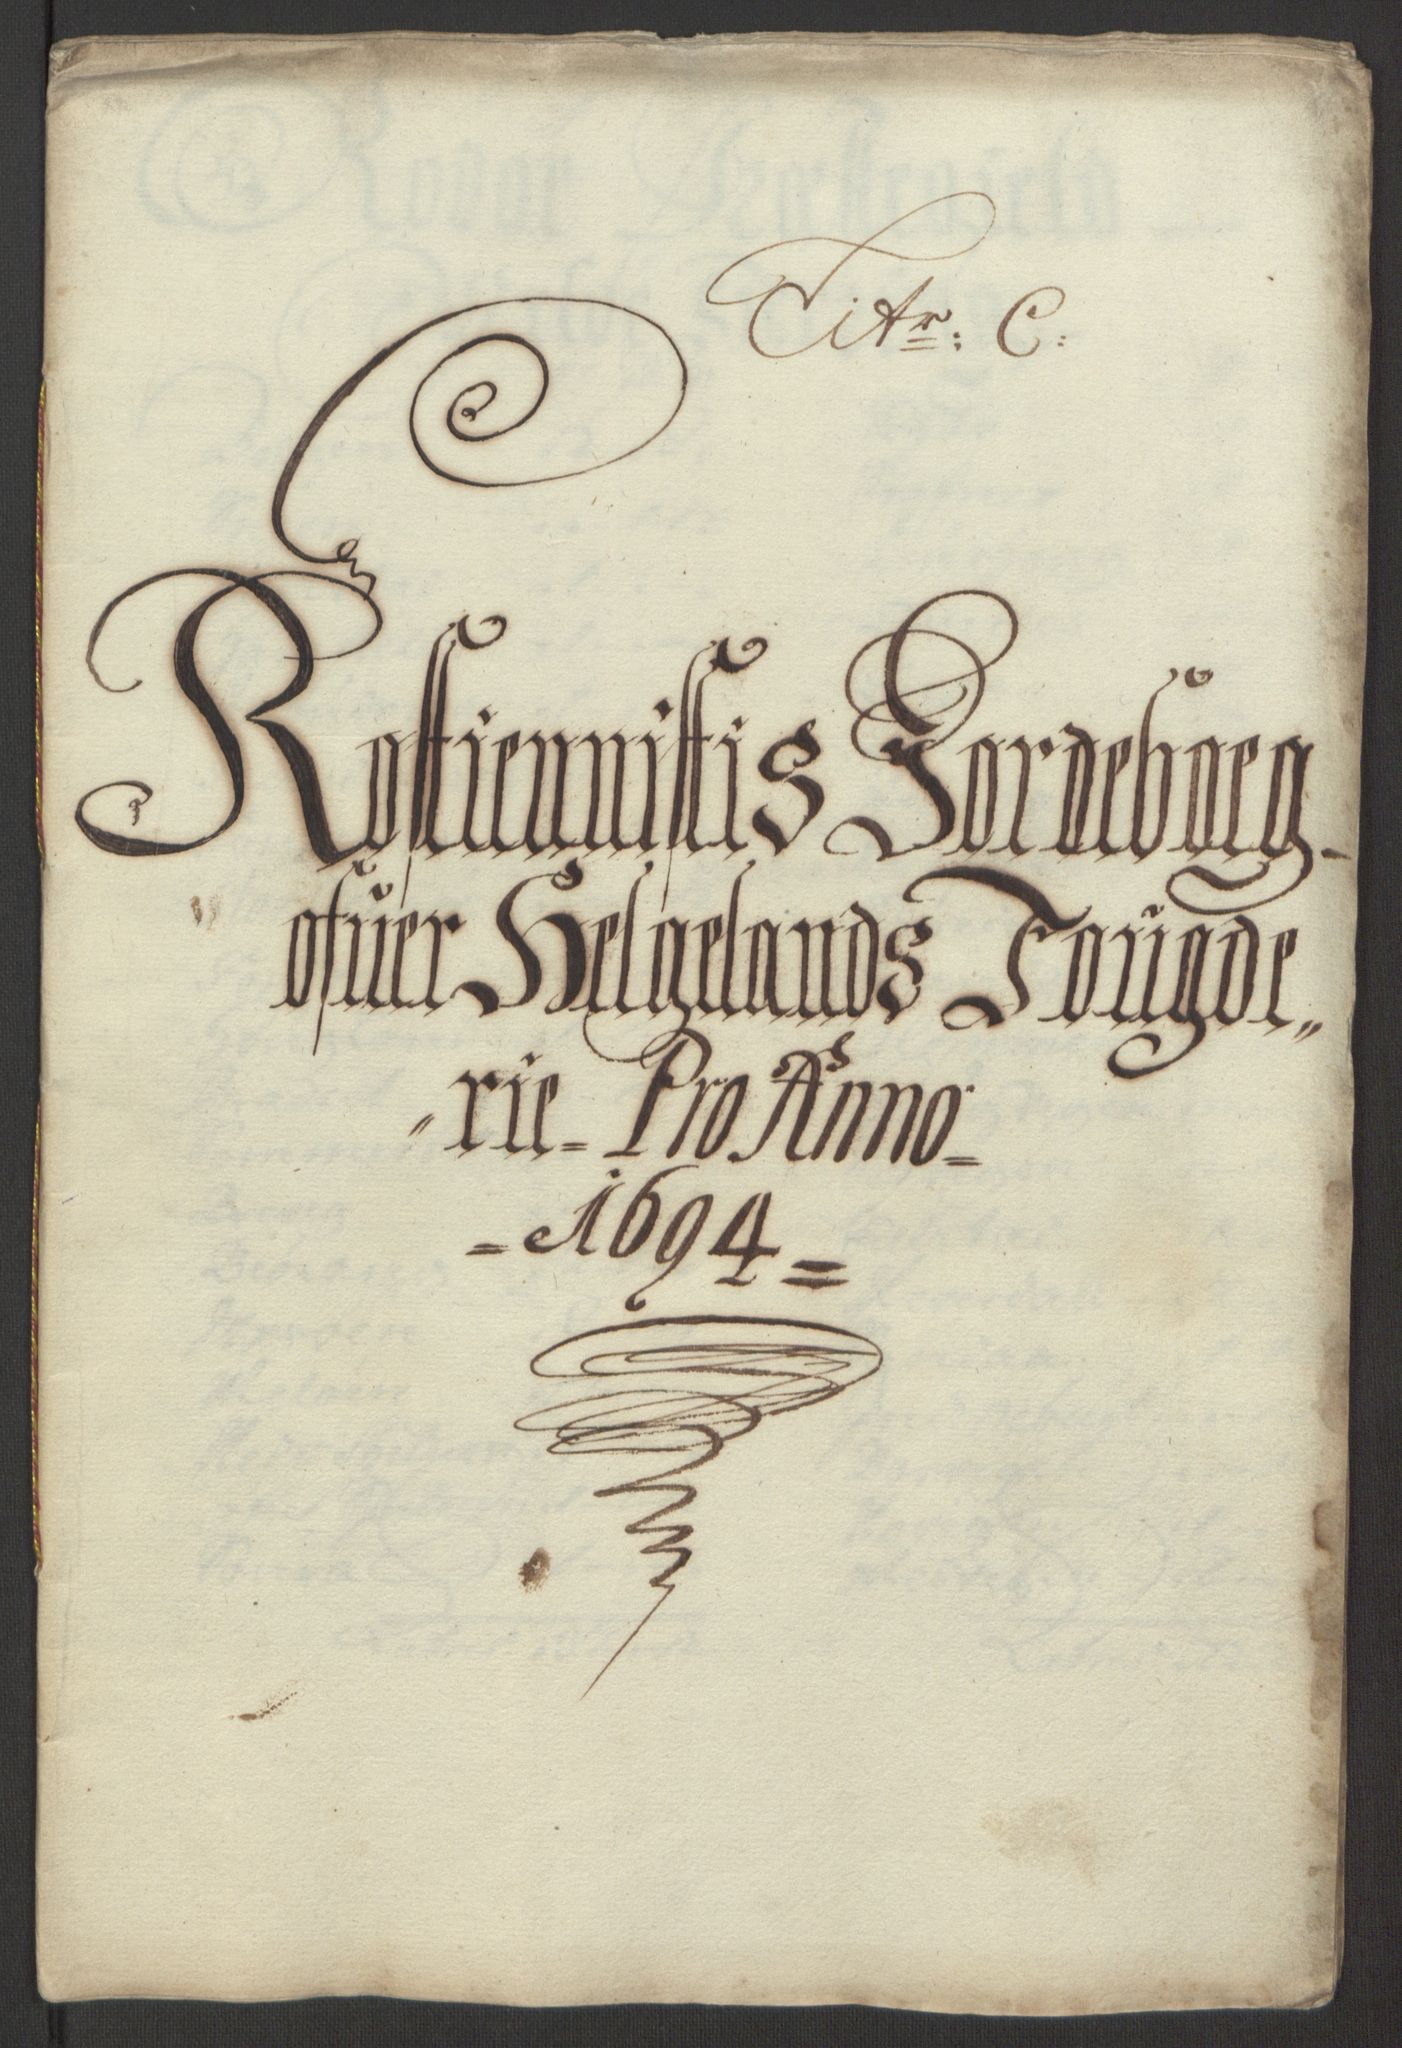 Litr: C:
En
Rostiennistis Jordeboeg
ofuer Helgelands Fougde„
„rie Pro Anno
1694